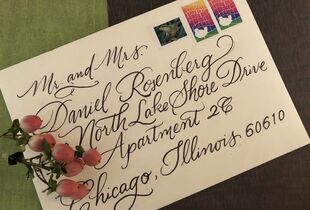 Mr. and Mrs.
Daniel Rosenberg
North Lake Shore Drive
Apartment 2C
Chicago, Illinois 60610